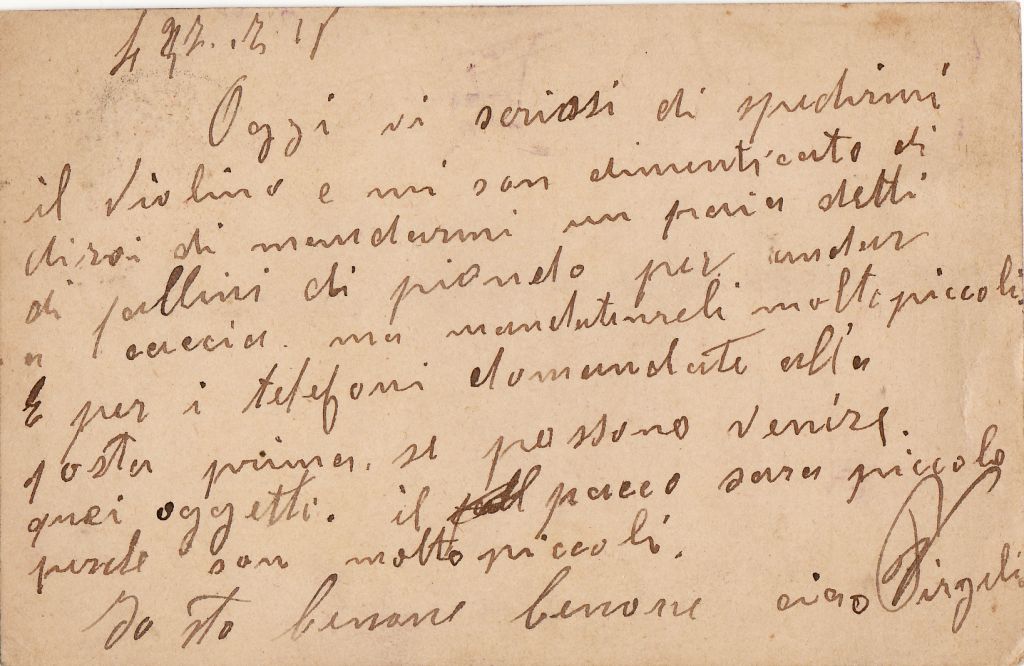 Oggi vi scrissi di spedirmi
il violino e mi son dimenticato di
dirvi di mandarmi un paia detti
di pallini di piondo per andar
a caccia. ma mandatimeli molto piccoli.
E per i telefoni domandate alla
posta prima. se possono venire.
quei oggetti. il pacco sara piccolo
perche son molto piccoli.
Io sto benone benone ciao